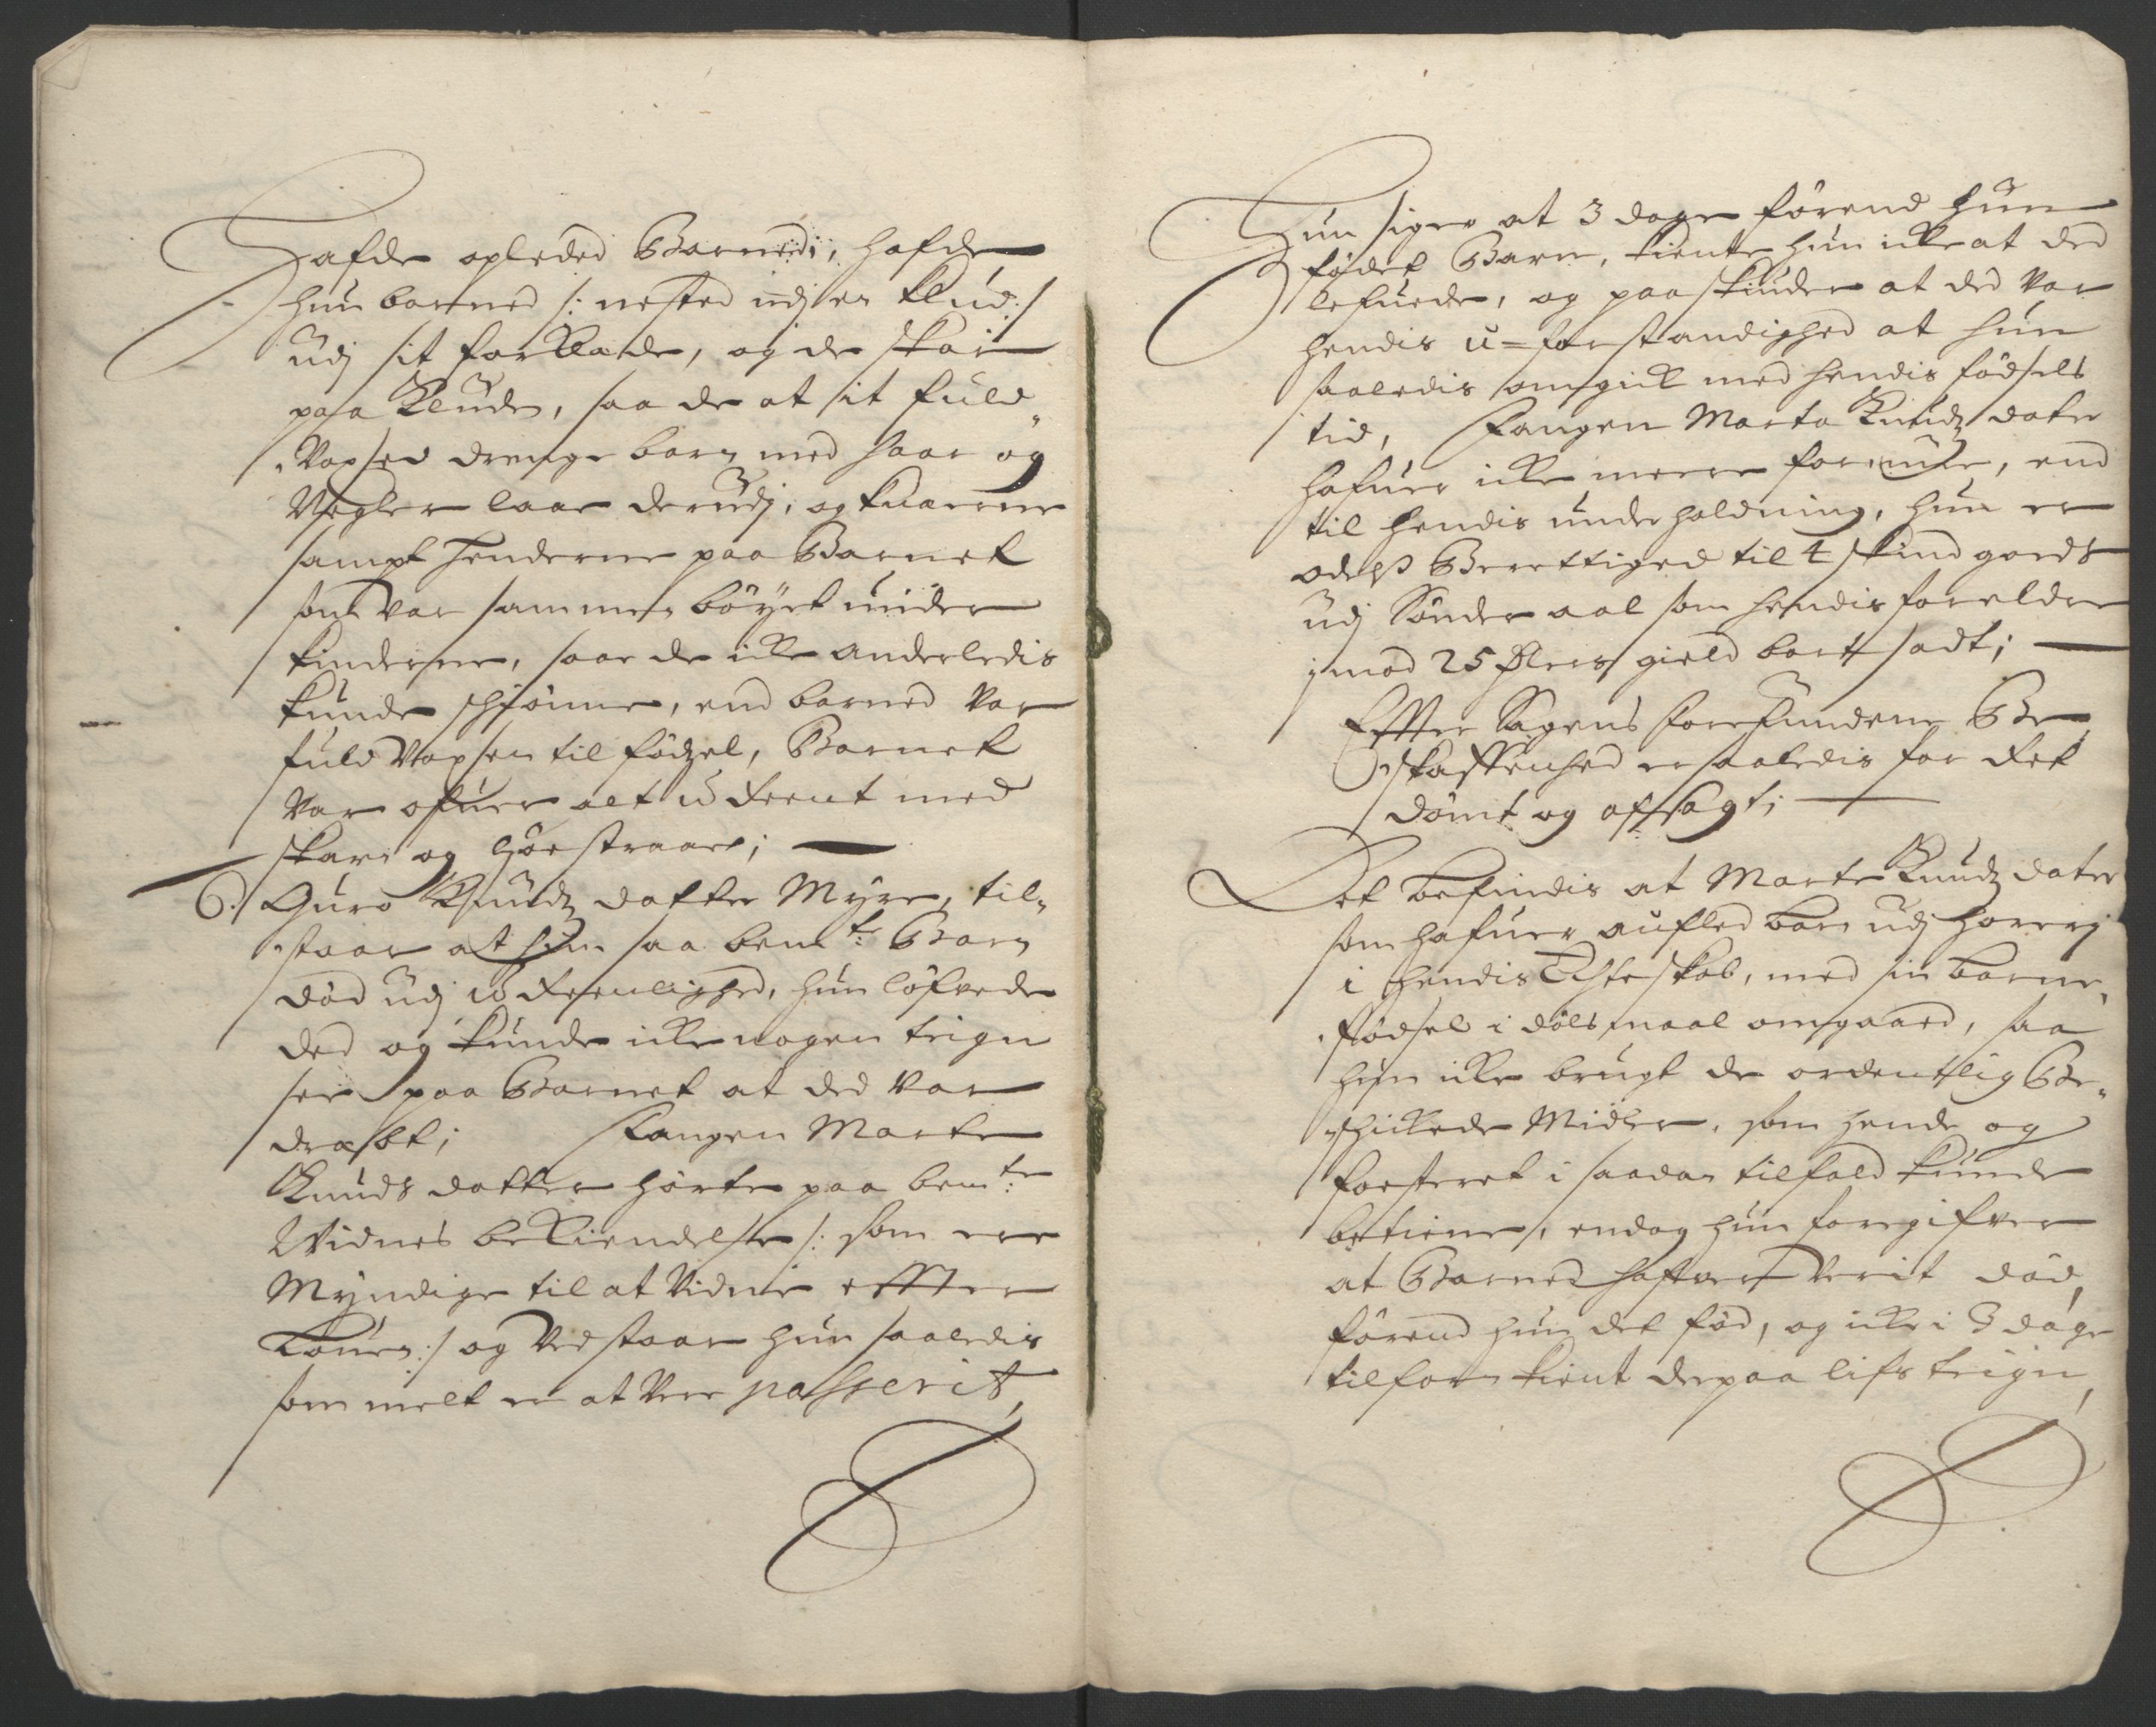 Hafde opleded Barned, hafde
hun barned /: nested udj en Klud :/
udj sit forklæde, og de skar
paa Kluden, saa de at it fuld„
„Voxsed drenge barn med haar og
Negler laae derudj, og knærne
sampt henderne paa Barnet
som var sammen böyet under
kinderne, saa de icke anderledis
kunde schiönne, end barned var
fuld Voxsen til födzel, Barnet
var ofuer alt u-Reent med
skarn og höestraae;
6. Guro Knudz datter Myre, til„
„staar at hun saa bem:te Barn
död udj u-Reenlighed, hun löfvede
ded og kunde icke nogen teign
see paa Barnet at ded var
dræbt; Fangen Marte
Knuds datter hörte paa bem:te
Vidnes bekiendelse /: som ere
Myndige til at Vidne effter
Louen :/ og Ved staar hun saaledis
som melt er at Vere passerit,
Hun siger at 3 dage förend hun
födet Barn, kiente hun icke at ded
lefuede, og paaskiuder at ded var
hendis u=forstandighed at hun
saaledis omgick med hendis födsels
tid, Fangen Marta Knudz dater
hafuer icke meere formue, end
til hendis underholdning, hun er
odelß Berettiged til 4 skind goeds
udj Sönder aal som hendis foreldre
imod 25 Dlers gield bort sadt;
Effter Sagens forefundene Be„
„skaffenhed er saaledis for Ret
dömt og afsagt;
Det befindis at Marte Knudz dater
som hafuer auflet barn udj horerj
i hendis Echteskab, med sin barne„
„födsel i dölsmaal omgaaed, saa
hun icke brugt de ordentlig Be„
„schickede Midler, som hende og
fosteret i saadan tilfald kunde
betiene, endog hun foregifver
at Barned hafver verit död,
förend hun det föd, og icke i 3 dage
tilforn kient derpaa lifs teign,